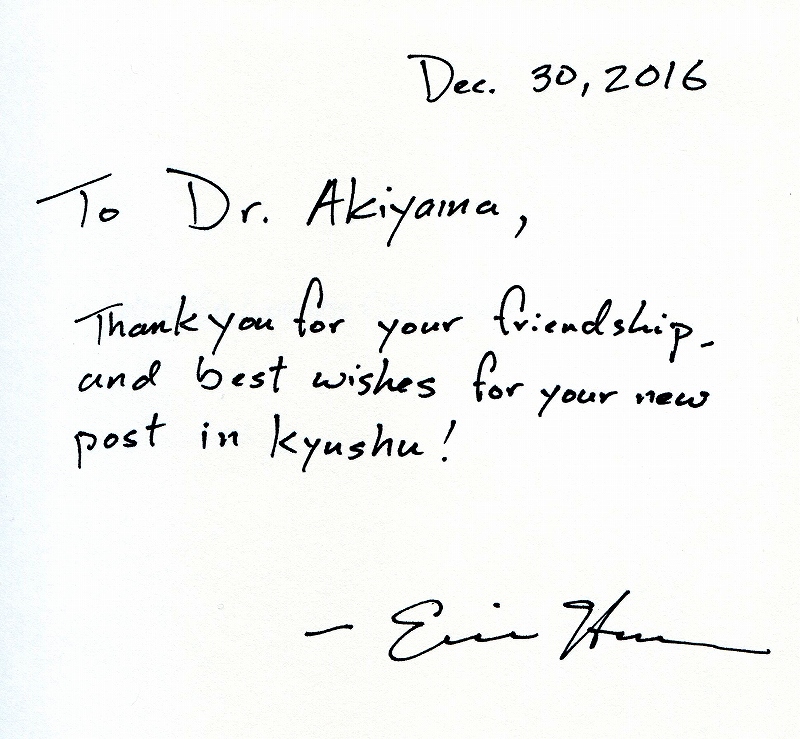 Dec. 30, 2016
To Dr. Akiyama,
Thank you for your friendship -
and best wishes for your new
post in Kyushu!
— Eric